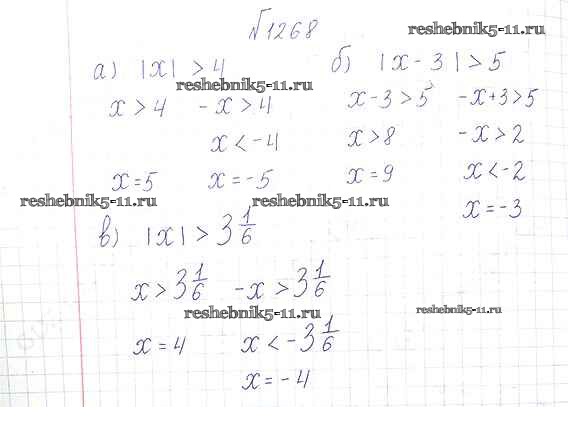 №1268
reshebnik5-11.ru
а) |x| > 4
б) |x - 3| > 5
reshebnik5-11.ru
x > 4    -x > 4
x - 3 > 5    -x + 3 > 5
x < -4
x > 8    -x > 2
x = 5    x = -5
x = 9    x < -2
reshebnik5-11.ru    reshebnik5-11.ru
x = -3
в) |x| > 3 1/6
x > 3 1/6    -x > 3 1/6
reshebnik5-11.ru    reshebnik5-11.ru
x = 4    x < -3 1/6
x = -4